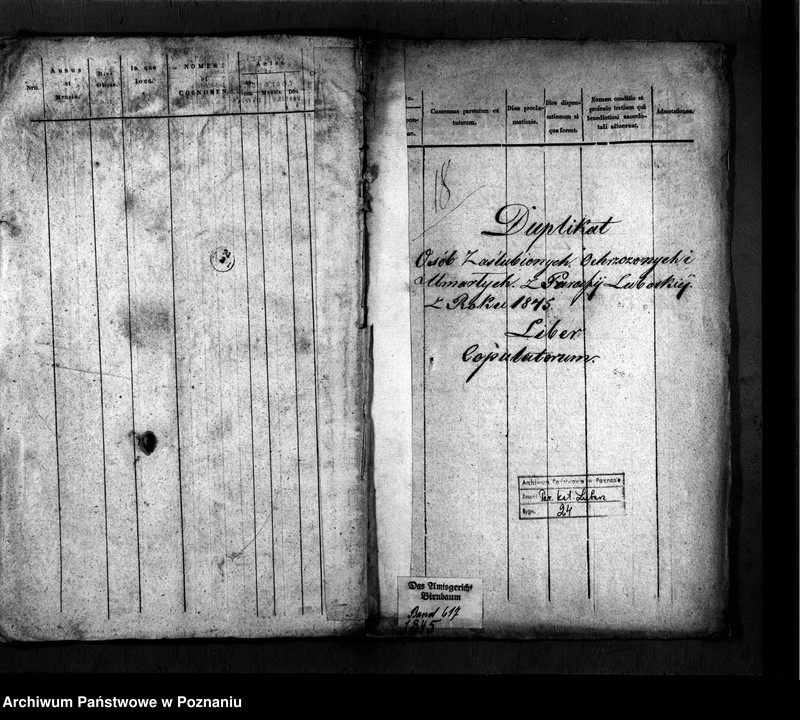 Nro.
Annus
et
Mensis.
Dies
In quo
loco.
NOMEN
et
COGNOMEN
Aetas
Mensis
Die.
Consensus parentum et
tutorum.
Dies procla-
mationis.
Dies dispen-
sationum si
quae fuerunt.
Nomen conditio et
professio testium qui
benedictioni sacerdo-
tali adfuerunt.
Adnotationes.
18
Duplikat
Osób Zaślubionych, Ochrzczonych i
Umarłych. Z Parafij Luboskiéj.
Z Roku 1845
Liber
Copulatorum.
Archiwum Państwowe w Poznaniu
Zespół Par. kat. Lubosz
Sygn. 24
Das Amtsgericht
Birnbaum
Band 617
1845
Archiwum Państwowe w Poznaniu